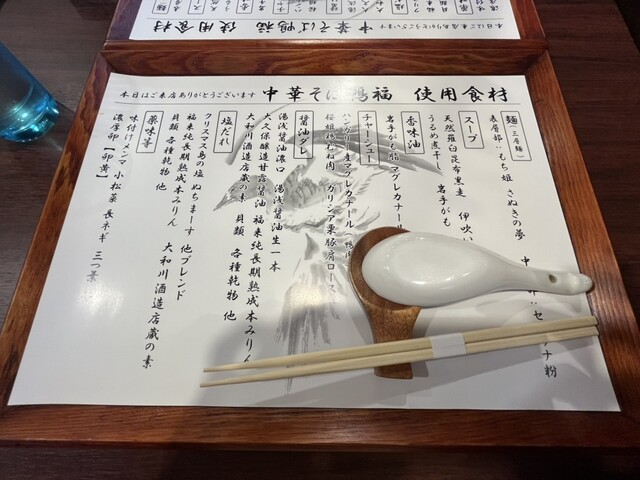 本日はご来店ありがとうございます 中華そば鴨福 使用食材
麺（三層麺）
表層部：もち姫 さぬきの夢
スープ
天然羅臼昆布黒走 伊吹い
うるめ煮干し 岩手がも
香味油
岩手がも脂 マグレカナール
チャーシュー
ハンガリー産マグレカナール
桜姫鶏むね肉 ガリシア栗豚肩ロース
醤油ダレ
湯浅醤油濃口 湯浅醤油 生一本
大久保醸造甘露醤油 福来純長期熟成本みりん
大和川酒造店蔵の素 貝類 各種乾物 他
塩だれ
クリスマス島の塩 ぬちまーす 他ブレンド
福来純長期熟成本みりん 大和川酒造店蔵の素
貝類 各種乾物 他
薬味等
味付けメンマ 小松菜 長ネギ 三つ葉
濃厚卵【卵黄】
中華そば鴨福 使用食材
本日はご来店ありがとうございます